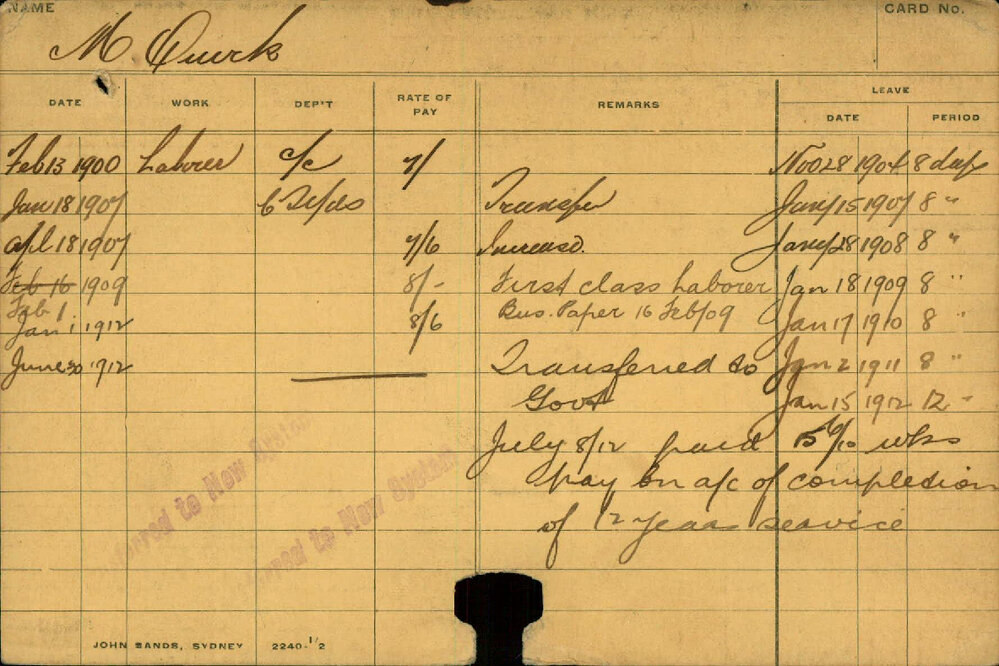 NAME
CARD No.
M Quirk
DATE WORK DEP'T RATE OF PAY REMARKS LEAVE
DATE PERIOD
Feb 13 1900 Laborer c/c 7/ Nov 28 1904 8 days
Jan 18 1907 Transfer Jany 15 1907 8 "
Apl 18 1907 7/6 Increased. Jany 28 1908 8 "
Feb 16 1909 8/- First class Laborer Jan 18 1909 8 "
Feb 1
Bus. Paper 16 Feb/09
Jan 1 1912 8/6 Jan 17 1910 8 "
June 30 1912 Transferred to Jan 2 1911 8 "
Govt Jan 15 1912 12 "
July 8/12 paid wks
pay on a/c of completion
of 12 years service
ferred to New System
rred to New System
JOHN SANDS, SYDNEY 2240-1/2